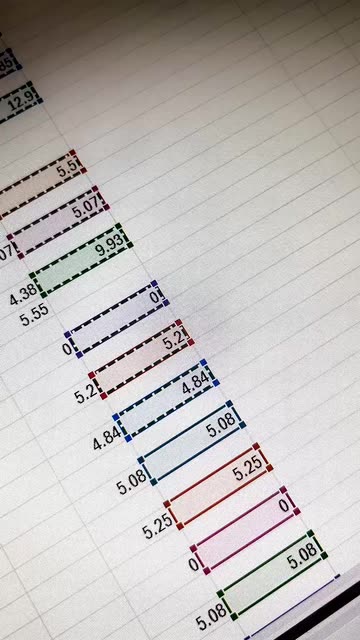 85
12.9
5.5
07 5.07
4.38 9.93
5.55
0 0
5.2 5.2
4.84 4.84
5.08 5.08
5.25 5.25
0 0
5.08 5.08